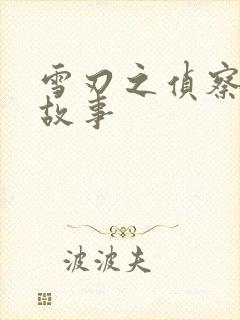 雪刃之偵察
故事
波波夫